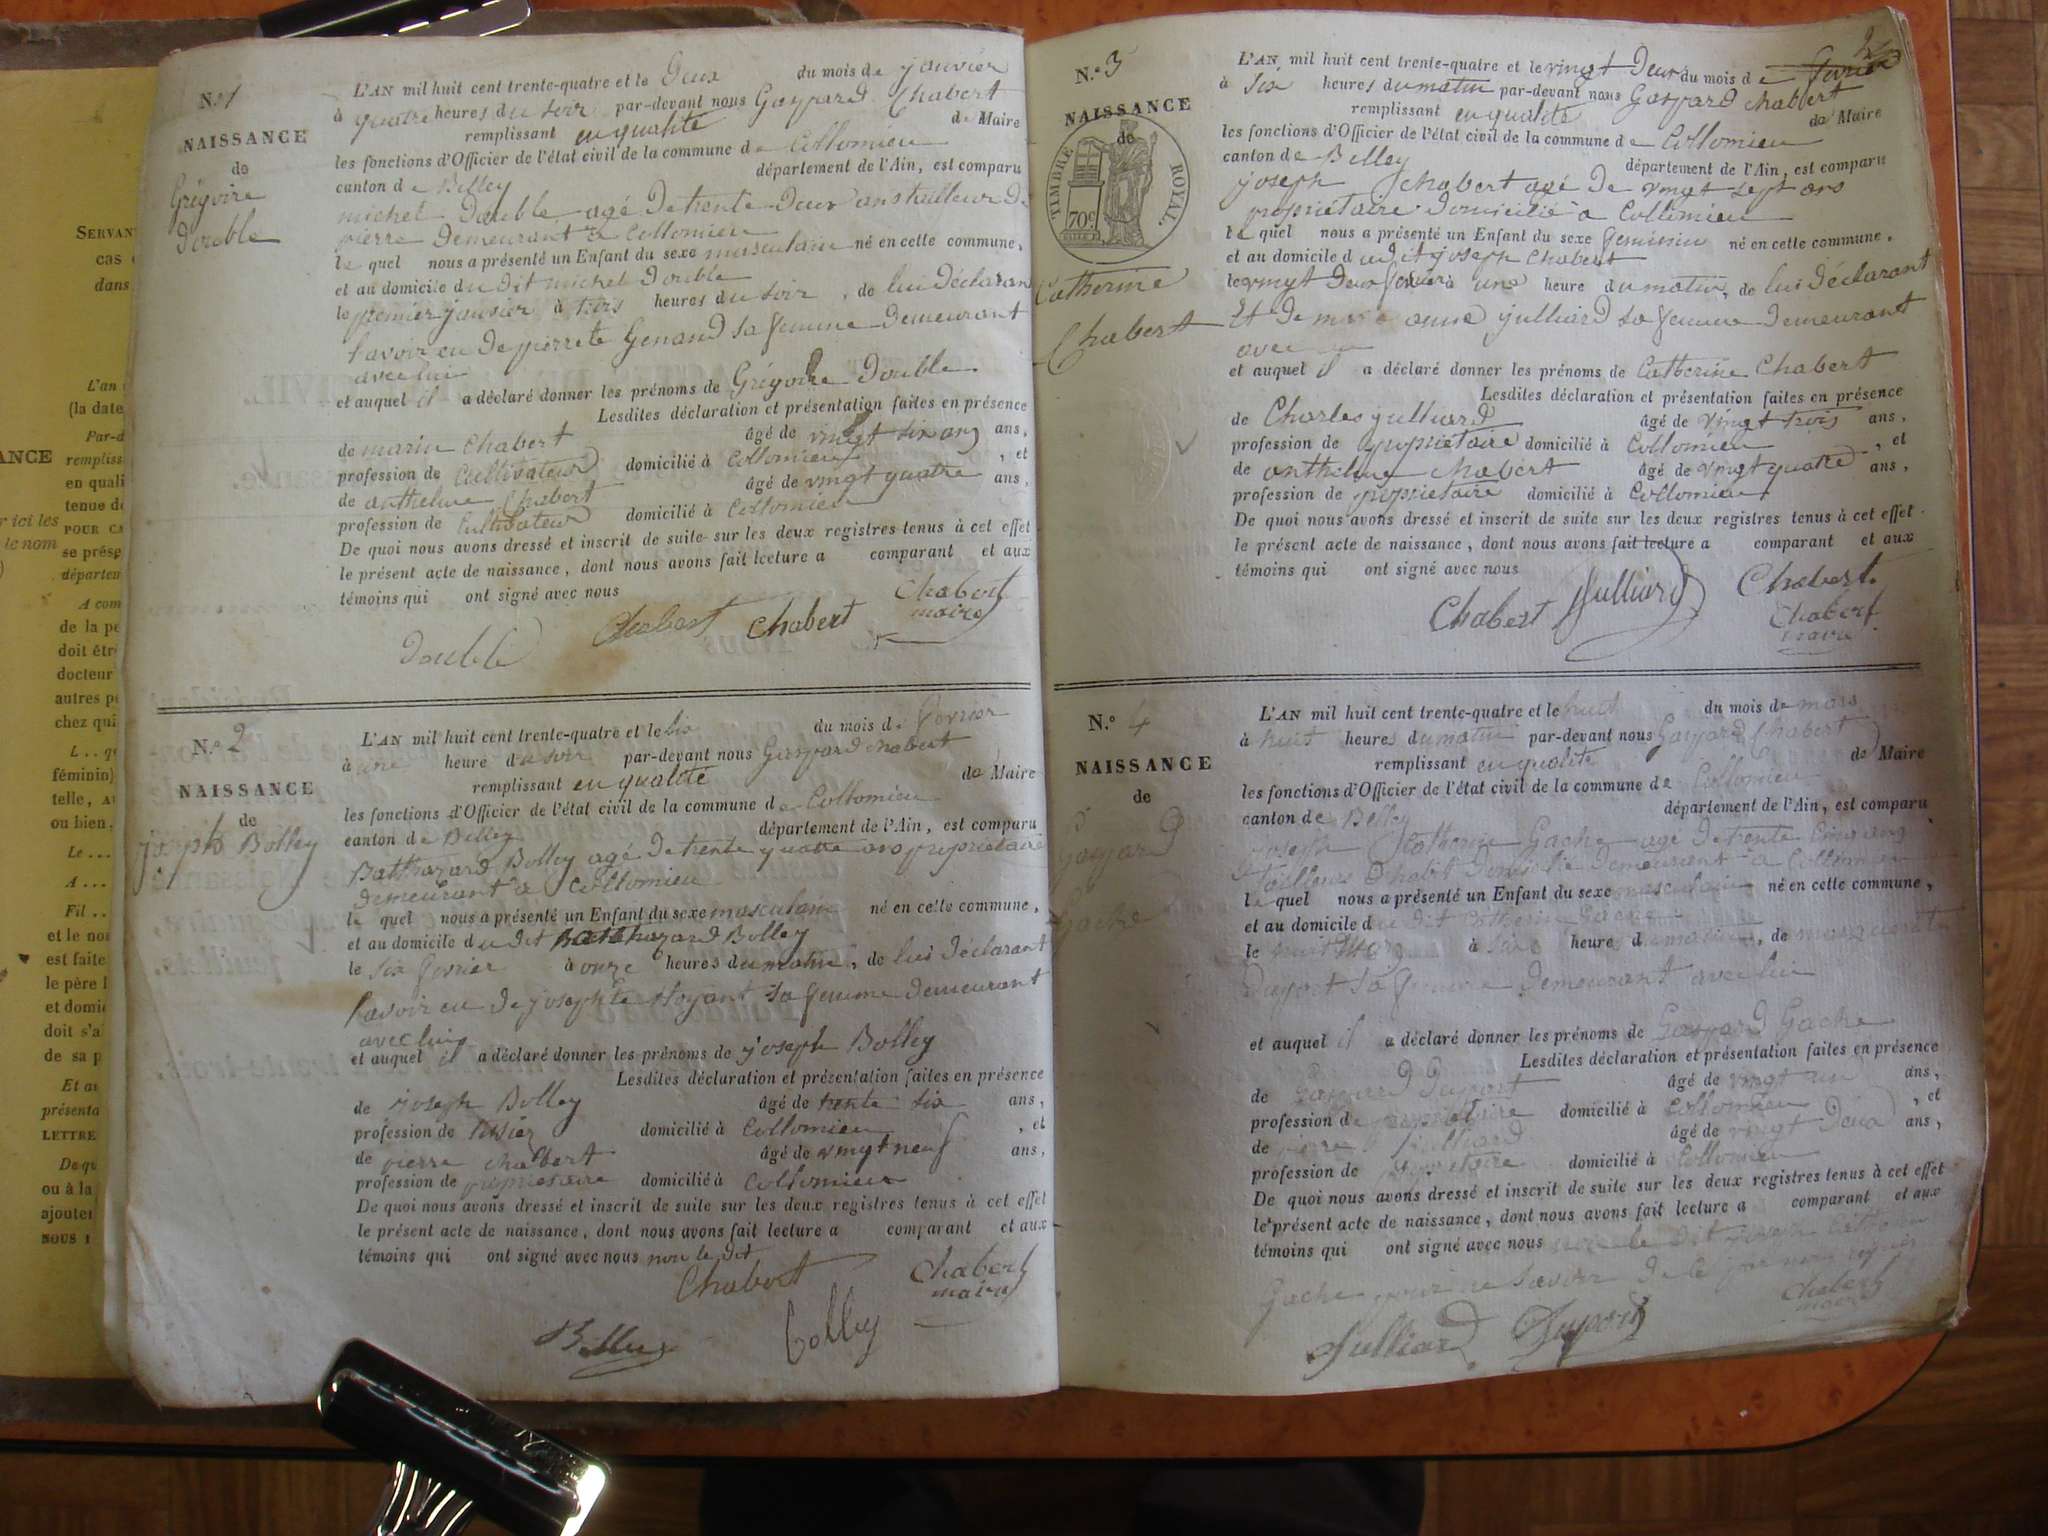 SERVAN
cas
dans
L'an
(la date
Par-d
rempliss
en quali
tenue d
POUR CA
se prés
départem
A com
de la pe
doit êtr
docteur
autres pe
chez qui
L . . qu
féminin)
telle, A
ou bien.
Le . . .
A . . .
Fil . .
et le no
est faite
le père l
et domi
doit s'a
de sa p
Et au
présenta
LETTRE
De qu
ou à la
ajouter
NOUS
ANCE
r ici les
le nom
)
N.º 1
NAISSANCE
de
Grégoire
Double
L'AN mil huit cent trente-quatre et le Deux du mois de janvier
à quatre heures du soir par-devant nous Gaspard Chabert
remplissant en qualité de Maire
les fonctions d'Officier de l'état civil de la commune de Collomieu
canton de Belley département de l'Ain, est comparu
michel Double agé De trente Deux ans tailleur De
pierre Demeurant a Collomieu
le quel nous a présenté un Enfant du sexe masculain né en cette commune,
et au domicile du dit michel Double
le premier janvier à trois heures du soir, de lui Déclarant
l'avoir eu De pierrete Genand sa femme Demeurant
avec lui
et auquel il a déclaré donner les prénoms de Grégoire Double
Lesdites déclaration et présentation faites en présence
de marin Chabert âgé de vingt six ans ans,
profession de Cultivateur domicilié à Collomieu, et
de anthelme Chabert âgé de vingt quatre ans,
profession de Cultivateur domicilié à Collomieu
De quoi nous avons dressé et inscrit de suite sur les deux registres tenus à cet effet
le présent acte de naissance, dont nous avons fait lecture a comparant et aux
témoins qui ont signé avec nous
Double Chabert Chabert Chabert
maire
N.º 2
NAISSANCE
de
joseph Bolley
L'AN mil huit cent trente-quatre et le six du mois de fevrier
à une heure du soir par-devant nous Gaspard chabert
remplissant en qualité de Maire
les fonctions d'Officier de l'état civil de la commune de Collomieu
canton de Belley département de l'Ain, est comparu
Balthazard Bolley agé De trente quatre ans propriétaire
Demeurant a Collomieu
le quel nous a présenté un Enfant du sexe masculain né en cette commune,
et au domicile du dit Balthazard Bolley
le six fevrier à onze heures du matin, de lui Déclarant
l'avoir eu De josephte sa femme Demeurant
avec lui
et auquel il a déclaré donner les prénoms de joseph Bolley
Lesdites déclaration et présentation faites en présence
de joseph Bolley âgé de trente six ans,
profession de domicilié à Collomieu, et
de pierre chabert âgé de vingt neuf ans,
profession de propriétaire domicilié à Collomieu
De quoi nous avons dressé et inscrit de suite sur les deux registres tenus à cet effet
le présent acte de naissance, dont nous avons fait lecture a comparant et aux
témoins qui ont signé avec nous non le dit
Chabert Chabert
maire
Bolley
2
N.º 3
NAISSANCE
de
TIMBRE ROYAL.
70c
Catherine
Chabert
L'AN mil huit cent trente-quatre et le vingt Deux du mois de
à six heures du matin par-devant nous Gaspard chabert
remplissant en qualité de Maire
les fonctions d'Officier de l'état civil de la commune de Collomieu
canton de Belley département de l'Ain, est comparu
joseph chabert agé De vingt sept ans
propriétaire Domicilié a Collomieu
le quel nous a présenté un Enfant du sexe feminin né en cette commune,
et au domicile du dit joseph Chabert
le vingt Deux à une heure du matin, de lui Déclarant
Et De anne julliard sa femme Demeurant
avec
et auquel il a déclaré donner les prénoms de Catherine Chabert
Lesdites déclaration et présentation faites en présence
de Charles julliard âgé de vingt trois ans,
profession de propriétaire domicilié à Collomieu, et
de anthelme chabert âgé de vingt quatre ans,
profession de propriétaire domicilié à Collomieu
De quoi nous avons dressé et inscrit de suite sur les deux registres tenus à cet effet
le présent acte de naissance, dont nous avons fait lecture a comparant et aux
témoins qui ont signé avec nous
Chabert Julliard Chabert
Chabert
maire
N.º 4
NAISSANCE
de
Gaspard
Gache
L'AN mil huit cent trente-quatre et le huit du mois de mars
à huit heures du matin par-devant nous Gaspard Chabert
remplissant en qualité de Maire
les fonctions d'Officier de l'état civil de la commune de Collomieu
canton de Belley département de l'Ain, est comparu
joseph Gache agé De trente cinq ans
tailleur D'habit Demeurant a Collomieu
le quel nous a présenté un Enfant du sexe masculain né en cette commune,
et au domicile du dit Gache
le huit à six heures du matin, de
Dupont sa femme Demeurant avec lui
et auquel il a déclaré donner les prénoms de Gaspard Gache
Lesdites déclaration et présentation faites en présence
de Gaspard Dupont âgé de vingt un ans,
profession de propriétaire domicilié à Collomieu, et
de julliard âgé de vingt Deux ans,
profession de propriétaire domicilié à Collomieu
De quoi nous avons dressé et inscrit de suite sur les deux registres tenus à cet effet
le présent acte de naissance, dont nous avons fait lecture a comparant et aux
témoins qui ont signé avec nous
Gache pour ne savoir De ce
Chabert
maire
Julliard Dupont